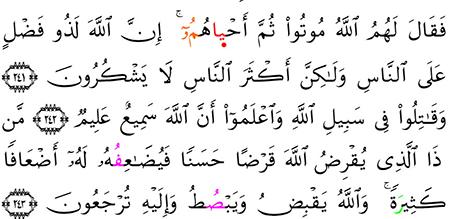 فَقَالَ لَهُمُ اُ۬للَّهُ مُوتُواْ ثُمَّ أَحْي۪اهُمُۥٓۚ إِنَّ اَ۬للَّهَ لَذُو فَضْلٍ
عَلَى اَ۬لنَّاسِ وَلَٰكِنَّ أَكْثَرَ اَ۬لنَّاسِ لَا يَشْكُرُونَ ﴿٢٤١﴾
وَقَٰتِلُواْ فِے سَبِيلِ اِ۬للَّهِ وَاعْلَمُوٓاْ أَنَّ اَ۬للَّهَ سَمِيعٌ عَلِيمٌ ﴿٢٤٢﴾ مَّن
ذَا اَ۬لَّذِے يُقْرِضُ اُ۬للَّهَ قَرْضًا حَسَنًا فَيُضَٰعِفُهُۥ لَهُۥٓ أَضْعَافًا
كَثِيرَةًۚ وَاللَّهُ يَقْبِضُ وَيَبْصُطُ وَإِلَيْهِ تُرْجَعُونَ ﴿٢٤٣﴾